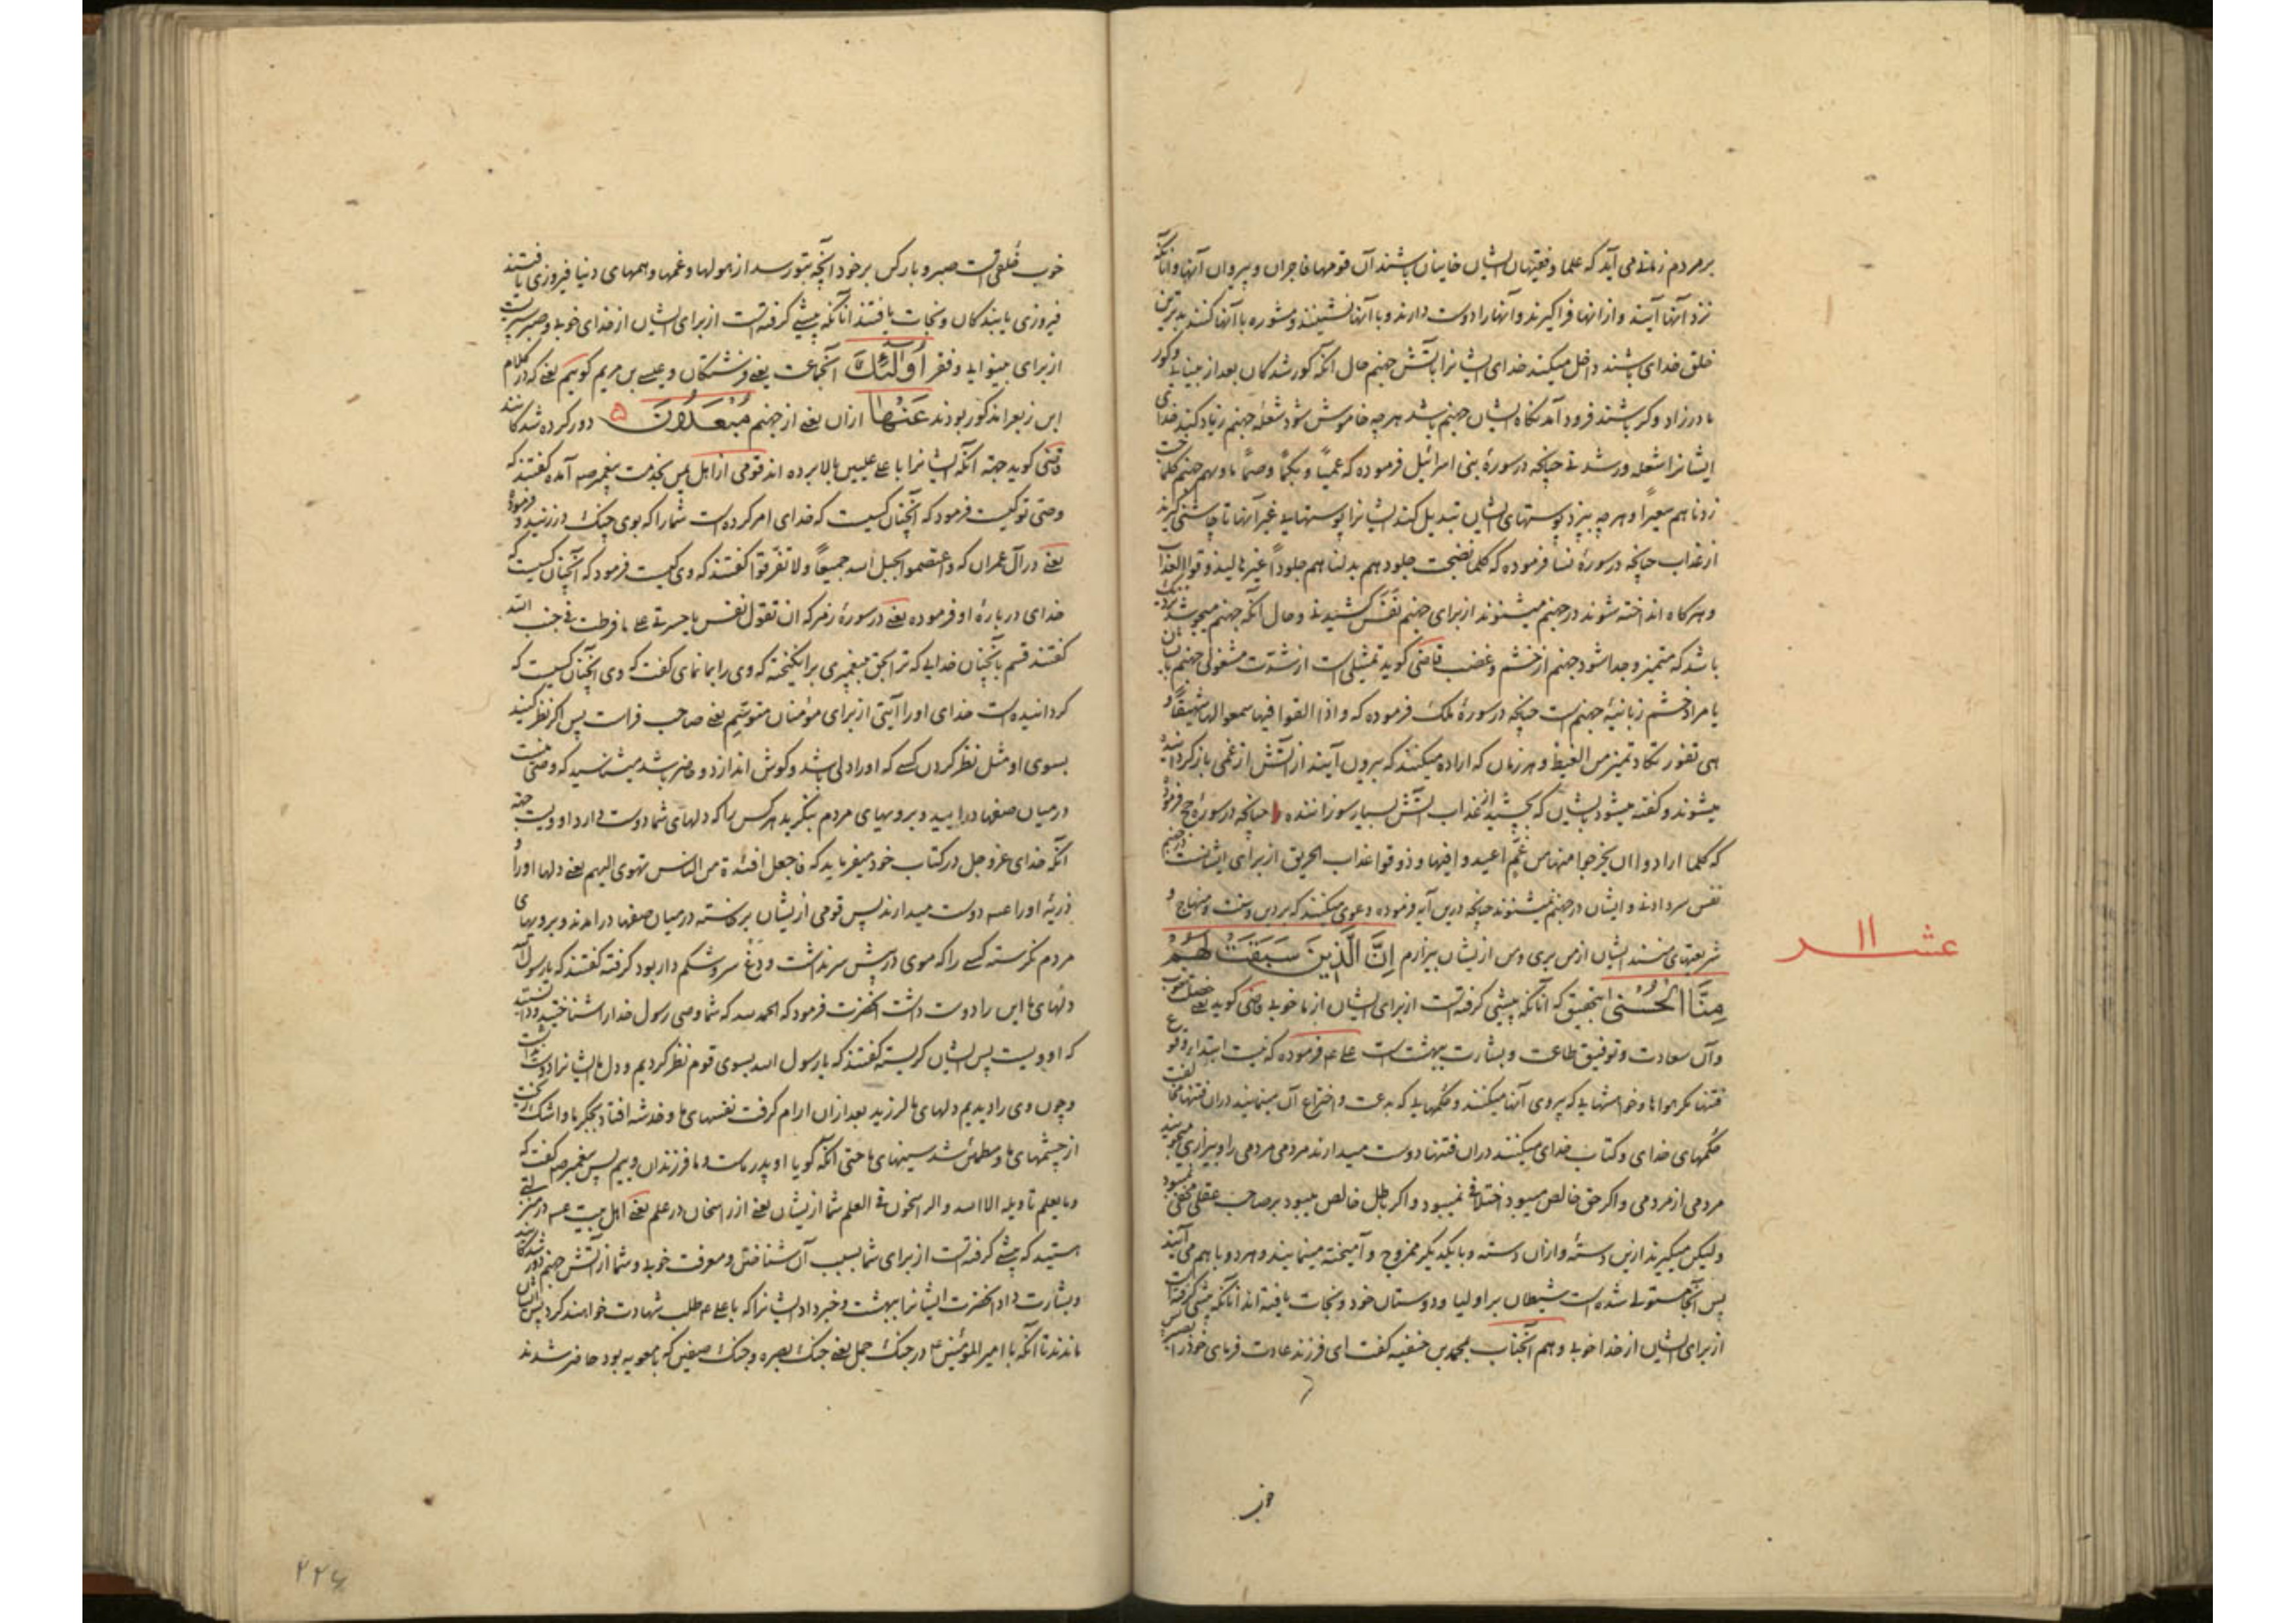 بر مردم زمانی می آید که علما و فقیهان ایشان خاینان باشند آن قومها فاجران و پیروان آنها و آنانکه
نزد آنها آیند و از آنها فرا گیرند و آنها را دوست دارند و با آنها نشینند و مشوره با آنها کنند بدترین
خلق خدای باشند داخل میکند خدای ایشانرا بآتش جهنم حال آنکه کور شدگان بعد از بینایی و کور
مادرزاد و کر باشند فرود آمدنگاه ایشان جهنم باشد هرچه خاموش شود شعله جهنم زیاد کند خدای
ایشانرا شعله ور شدنی چنانچه در سورۀ بنی اسرائیل فرموده که عمیاً و بکماً وصماً ماویهم جهنم کلما خبت
زدناهم سعیراً و هرچه بپزد پوستهای ایشان تبدیل کند ایشانرا پوستهایی غیر آنها تا چاشنی گیرند
از عذاب چنانچه در سورۀ نسا فرموده که کلما نضجت جلودهم بدلناهم جلوداً غیرها لیذوقوا العذاب
و هرکاه انداخته شوند در جهنم میشنوند از برای جهنم نفس کشیدنی و حال آنکه جهنم میجوشد نزدیک
باشد که متمیز و جدا شود جهنم از خشم و غضب قاضی کوید تمثیلی است از شدت مشغولی جهنم بآن
یا مراد خشم زبانیۀ جهنم است چنانچه در سورۀ ملک فرموده که و اذا القوا فیها سمعوا لها شهیقاً و
هی تفور تکاد تمیز من الغیظ و هر زمان که اراده میکنند که بیرون آیند از آتش از غمی باز کردانیده
میشوند و کفته میشود بایشان که بچشید از عذاب آتش بسیار سوزاننده چنانچه در سورۀ حج فرموده
که کلما ارادوا ان یخرجوا منها من غم اعیدوا فیها و ذوقوا عذاب الحریق از برای ایشانست در جهنم
نفس سرد دادند و ایشان در جهنم نمیشنوند چنانچه درین آیه فرموده دعوی میکنند که بر دین و سنت و منهاج و
شریعتهای منند ایشان از من بری و من از ایشان بیزارم إِنَّ الَّذِينَ سَبَقَتْ لَهُمْ
مِنَّا الْحُسْنَى بتحقیق که آنانکه پیشی کرفته است از برای ایشان از ما خوبی قاضی کوید یعنی خصلت خوب
و آن سعادت و توفیق طاعت و بشارت ببهشت است علی عه فرموده که نیست ابتداء وقوع
فتنها مکر هواها و خواهشهایی که پیروی آنها میکنند و حکمهایی که بدعت و اختراع آن مینمایند در آن فتنها مخالفت
حکمهای خدای و کتاب خدای میکنند در آن فتنها دوست میدارند مردمی مردمی را و بیزاری میجویند
مردمی از مردمی و اکر حق خالص میبود اختلافی نمیبود و اکر باطل خالص میبود بر صاحب عقلی مخفی نمیبود
ولیکن میکیرند ازین دستهٔ و از آن دسته و بایکدیگر ممزوج و آمیخته مینمایند و هر دو باهم می آیند
پس آنجا مستولی شده است شیطان بر اولیا و دوستان خود و نجات یافته اند آنانکه پیشی کرفته است
از برای ایشان از خدا خوبی و هم آنجناب بمحمد بن حنفیه کفت ای فرزند عادت فرمای خود را
خوب
عشر ۱۱
خوب خُلقی است صبر و بار کس بر خود آنچه بتو رسد از هولها و غمها و همهای دنیا فیروزی یافتند
فیروزی یابندکان و نجات یافتند آنانکه پیشی کرفته است از برای ایشان از خدای خوبی
از برای بینوایی و فقر أُولَٰئِكَ آنجماعت یعنی فرشتکان و عیسی بن مریم کوییم یعنی که در کلام
ابن زبعرا مذکور بودند عَنْهَا از آن یعنی از جهنم مُبْعَدُونَ دور کرده شدکانند
قاضی کوید جهة آنکه ایشانرا باعلی علیین بالا برده اند قومی از اهل یمن بخدمت پیغمبر صه آمده کفتند که
وصی تو کیست فرمود که آنچنان کسیست که خدای امر کرده است شما را که بوی چنک در زنید و فرموده
یعنی در آل عمران که و اعتصموا بحبل الله جمیعاً و لا تفرقوا کفتند که وی کیست فرمود که آنچنان کسیست که
خدای دربارۀ او فرموده یعنی در سورۀ زمر که ان تقول نفس یا حسرتی علی ما فرطت فی جنب الله
کفتند قسم بآنچنان خدایی که ترا بحق بپیغمبری برانکیخته که وی را بما نمای کفت که وی آنچنان کسیست که
کردانیده است خدای او را آیتی از برای مؤمنان متوسّم یعنی صاحب فراست پس اکر نظر کنید
بسوی او مثل نظر کردن کسی که او را دلی باشد و کوش اندازد و حاضر باشد میشناسید که وصی منست
در میان صفها درایید و برویهای مردم بنکرید هر کس را که دلهای شما دوست دارد او ویست جهة
آنکه خدای عز و جل در کتاب خود میفرماید که فاجعل افئدة من الناس تهوی الیهم یعنی دلها او را و
ذریۀ او را عه دوست میدارند پس قومی ازیشان برخاسته در میان صفها درآمدند و برویهای
مردم نکرسته کسی را که موی در پیش سر نداشت و سر و شکم دار بود کرفته کفتند که یا رسول الله
دلهای ما این را دوست داشت آنحضرت فرمود که الحمد لله که شما وصی رسول خدا را شناختید و دانستید
که او ویست پس ایشان کریسته کفتند که یا رسول الله بسوی قوم نظر کردیم و دل ما ایشانرا دوست نداشت
و چون وی را دیدیم دلهای ما لرزید بعد از آن آرام کرفت نفسهای ما و خدشه افتاد بجکر ما و اشک ریخت
از چشمهای ما و مطمئن شد سینهای ما حتی آنکه کویا او پدر ماست و ما فرزندان وییم پس پیغمبر صه کفت که
و ما یعلم تاویله الا الله و الراسخون فی العلم شما ازیشان یعنی از راسخان در علم یعنی اهل بیت عه در منزلتی
هستید که پیشی کرفته است از برای شما بسبب آن شناختن و معرفت خوبی و شما از آتش جهنم دور شدکانید
و بشارت داد آنحضرت ایشانرا ببهشت و خبر داد ایشانرا که با علی عه طلب شهادت خواهند کرد پس ایشان
ماندند تا آنکه با امیر المؤمنین عه در جنک جمل یعنی جنک بصره و جنک صفین که با معویه بود حاضر شدند
۲۲۶